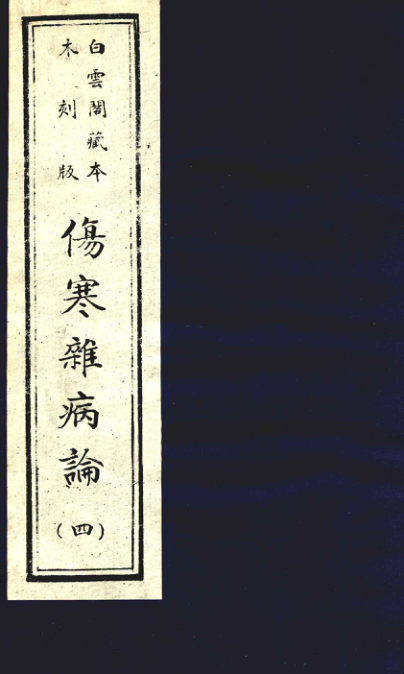 白雲閣藏本
木刻版
傷寒雜病論
（四）